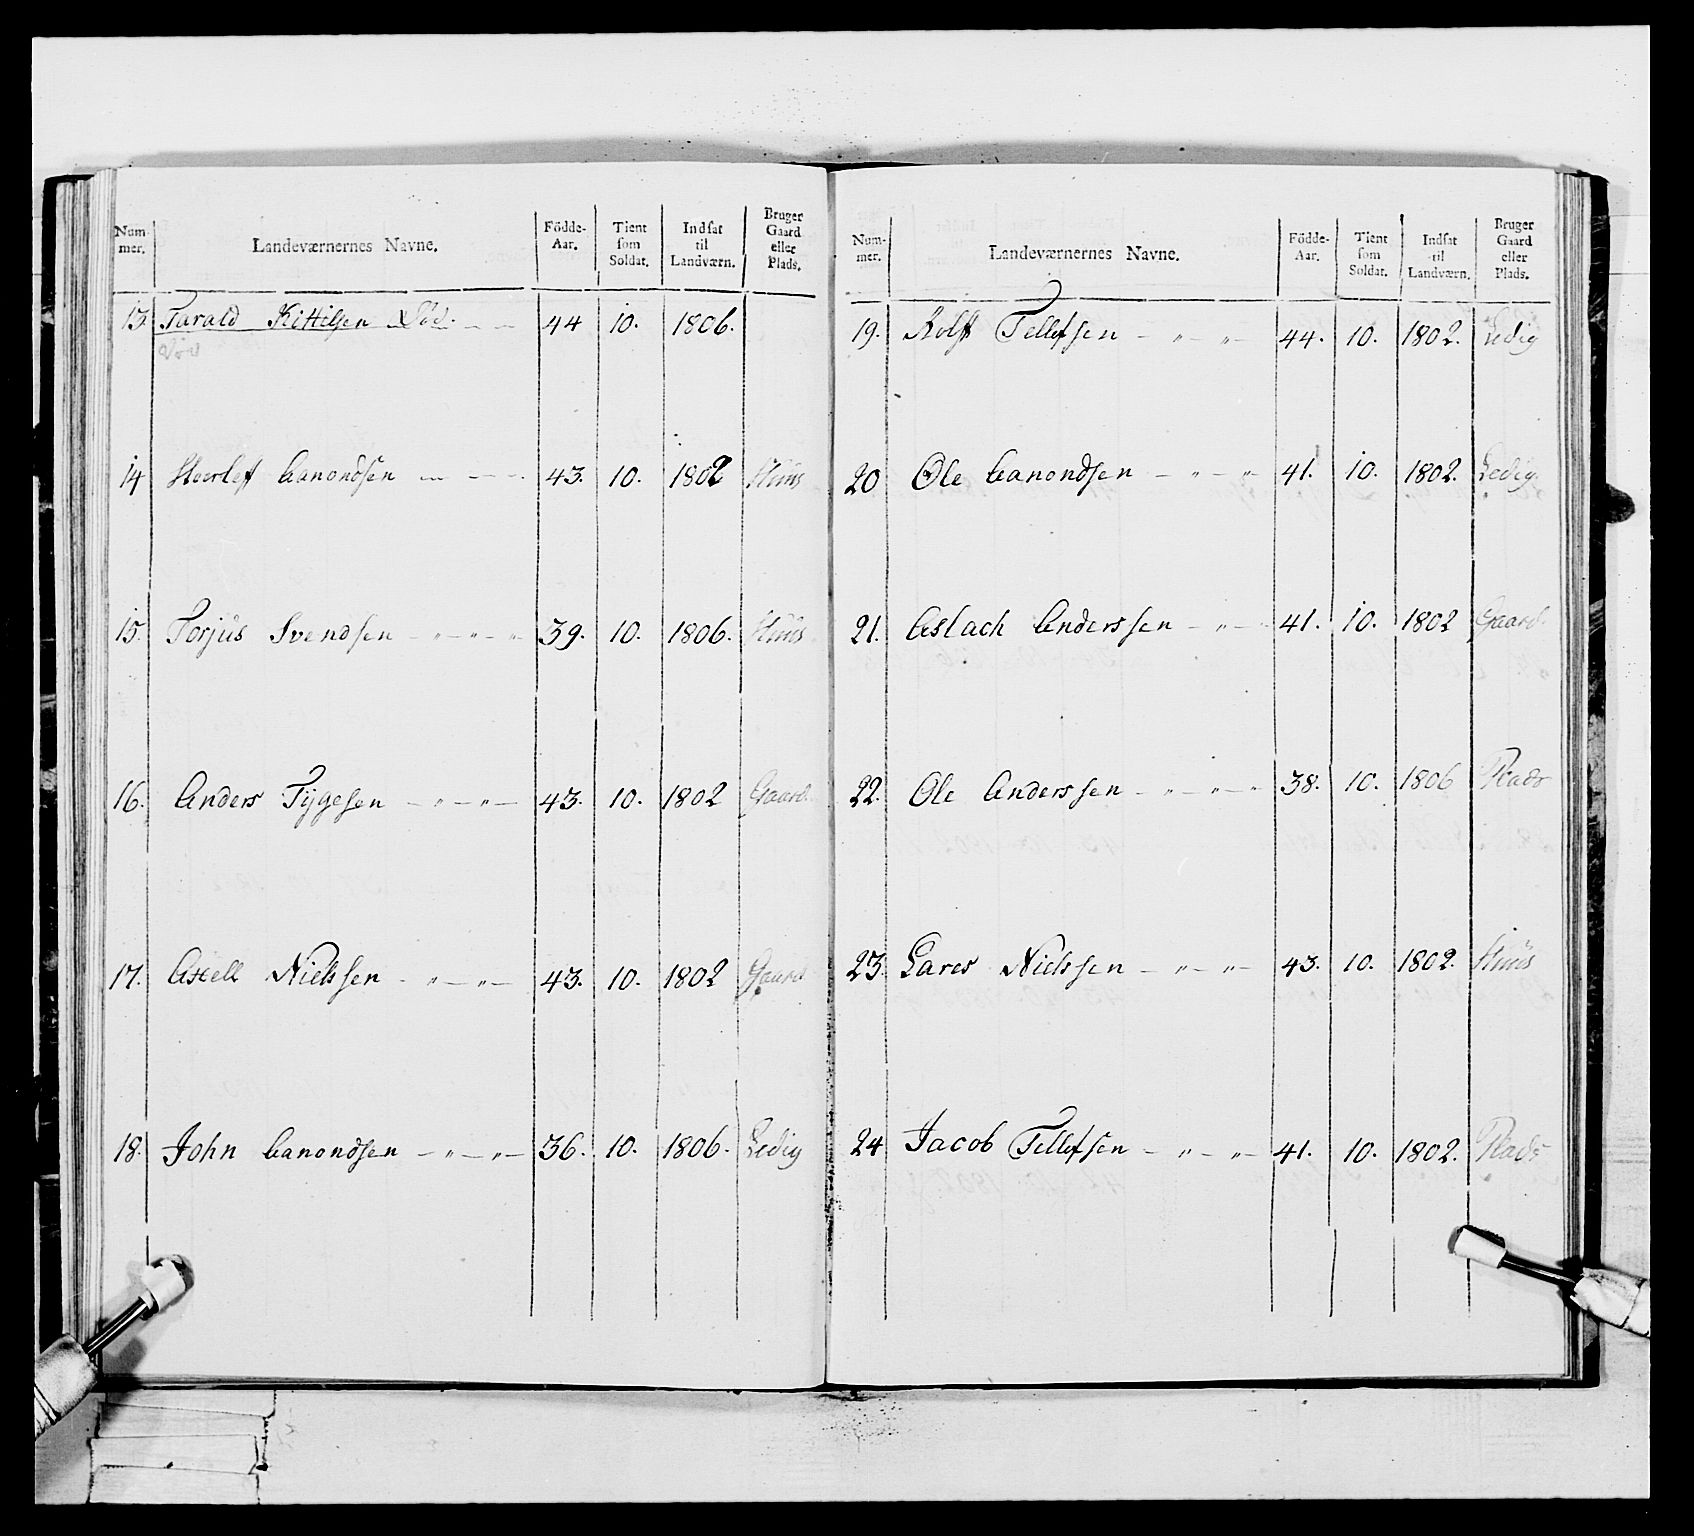 Num-
mer.
Landeværnernes Navne.
Födde-
Aar.
Tient
som
Soldat.
Indsat
til
Landværn.
Bruger
Gaard
eller
Plads.
13. Tarald Kittilsen Död. 44 10. 1806.
Död
14 Aanondsen 43. 10. 1802 Huus
15. Torjus Svendsen 39. 10. 1806. Huus
16. Anders Tygesen 43. 10. 1802 Gaard.
17. Axell Nielssen 43. 10. 1802 Gaard
18. John Aanondsen 36. 10. 1806. Ledig
Num-
mer.
Landeværnernes Navne.
Födde-
Aar.
Tient
som
Soldat.
Indsat
til
Landværn.
Bruger
Gaard
eller
Plads.
19. Rolff Tellefsen 44. 10. 1802. Ledig
20 Ole Aanondsen 41. 10. 1802. Ledig.
21. Aslach Anderssen 41. 10. 1802 Gaard.
22. Ole Anderssen 38. 10. 1806 Plads
23. Lares Nielssen 43. 10. 1802. Huus
24 Jacob Tellefsen 41. 10. 1802. Plads